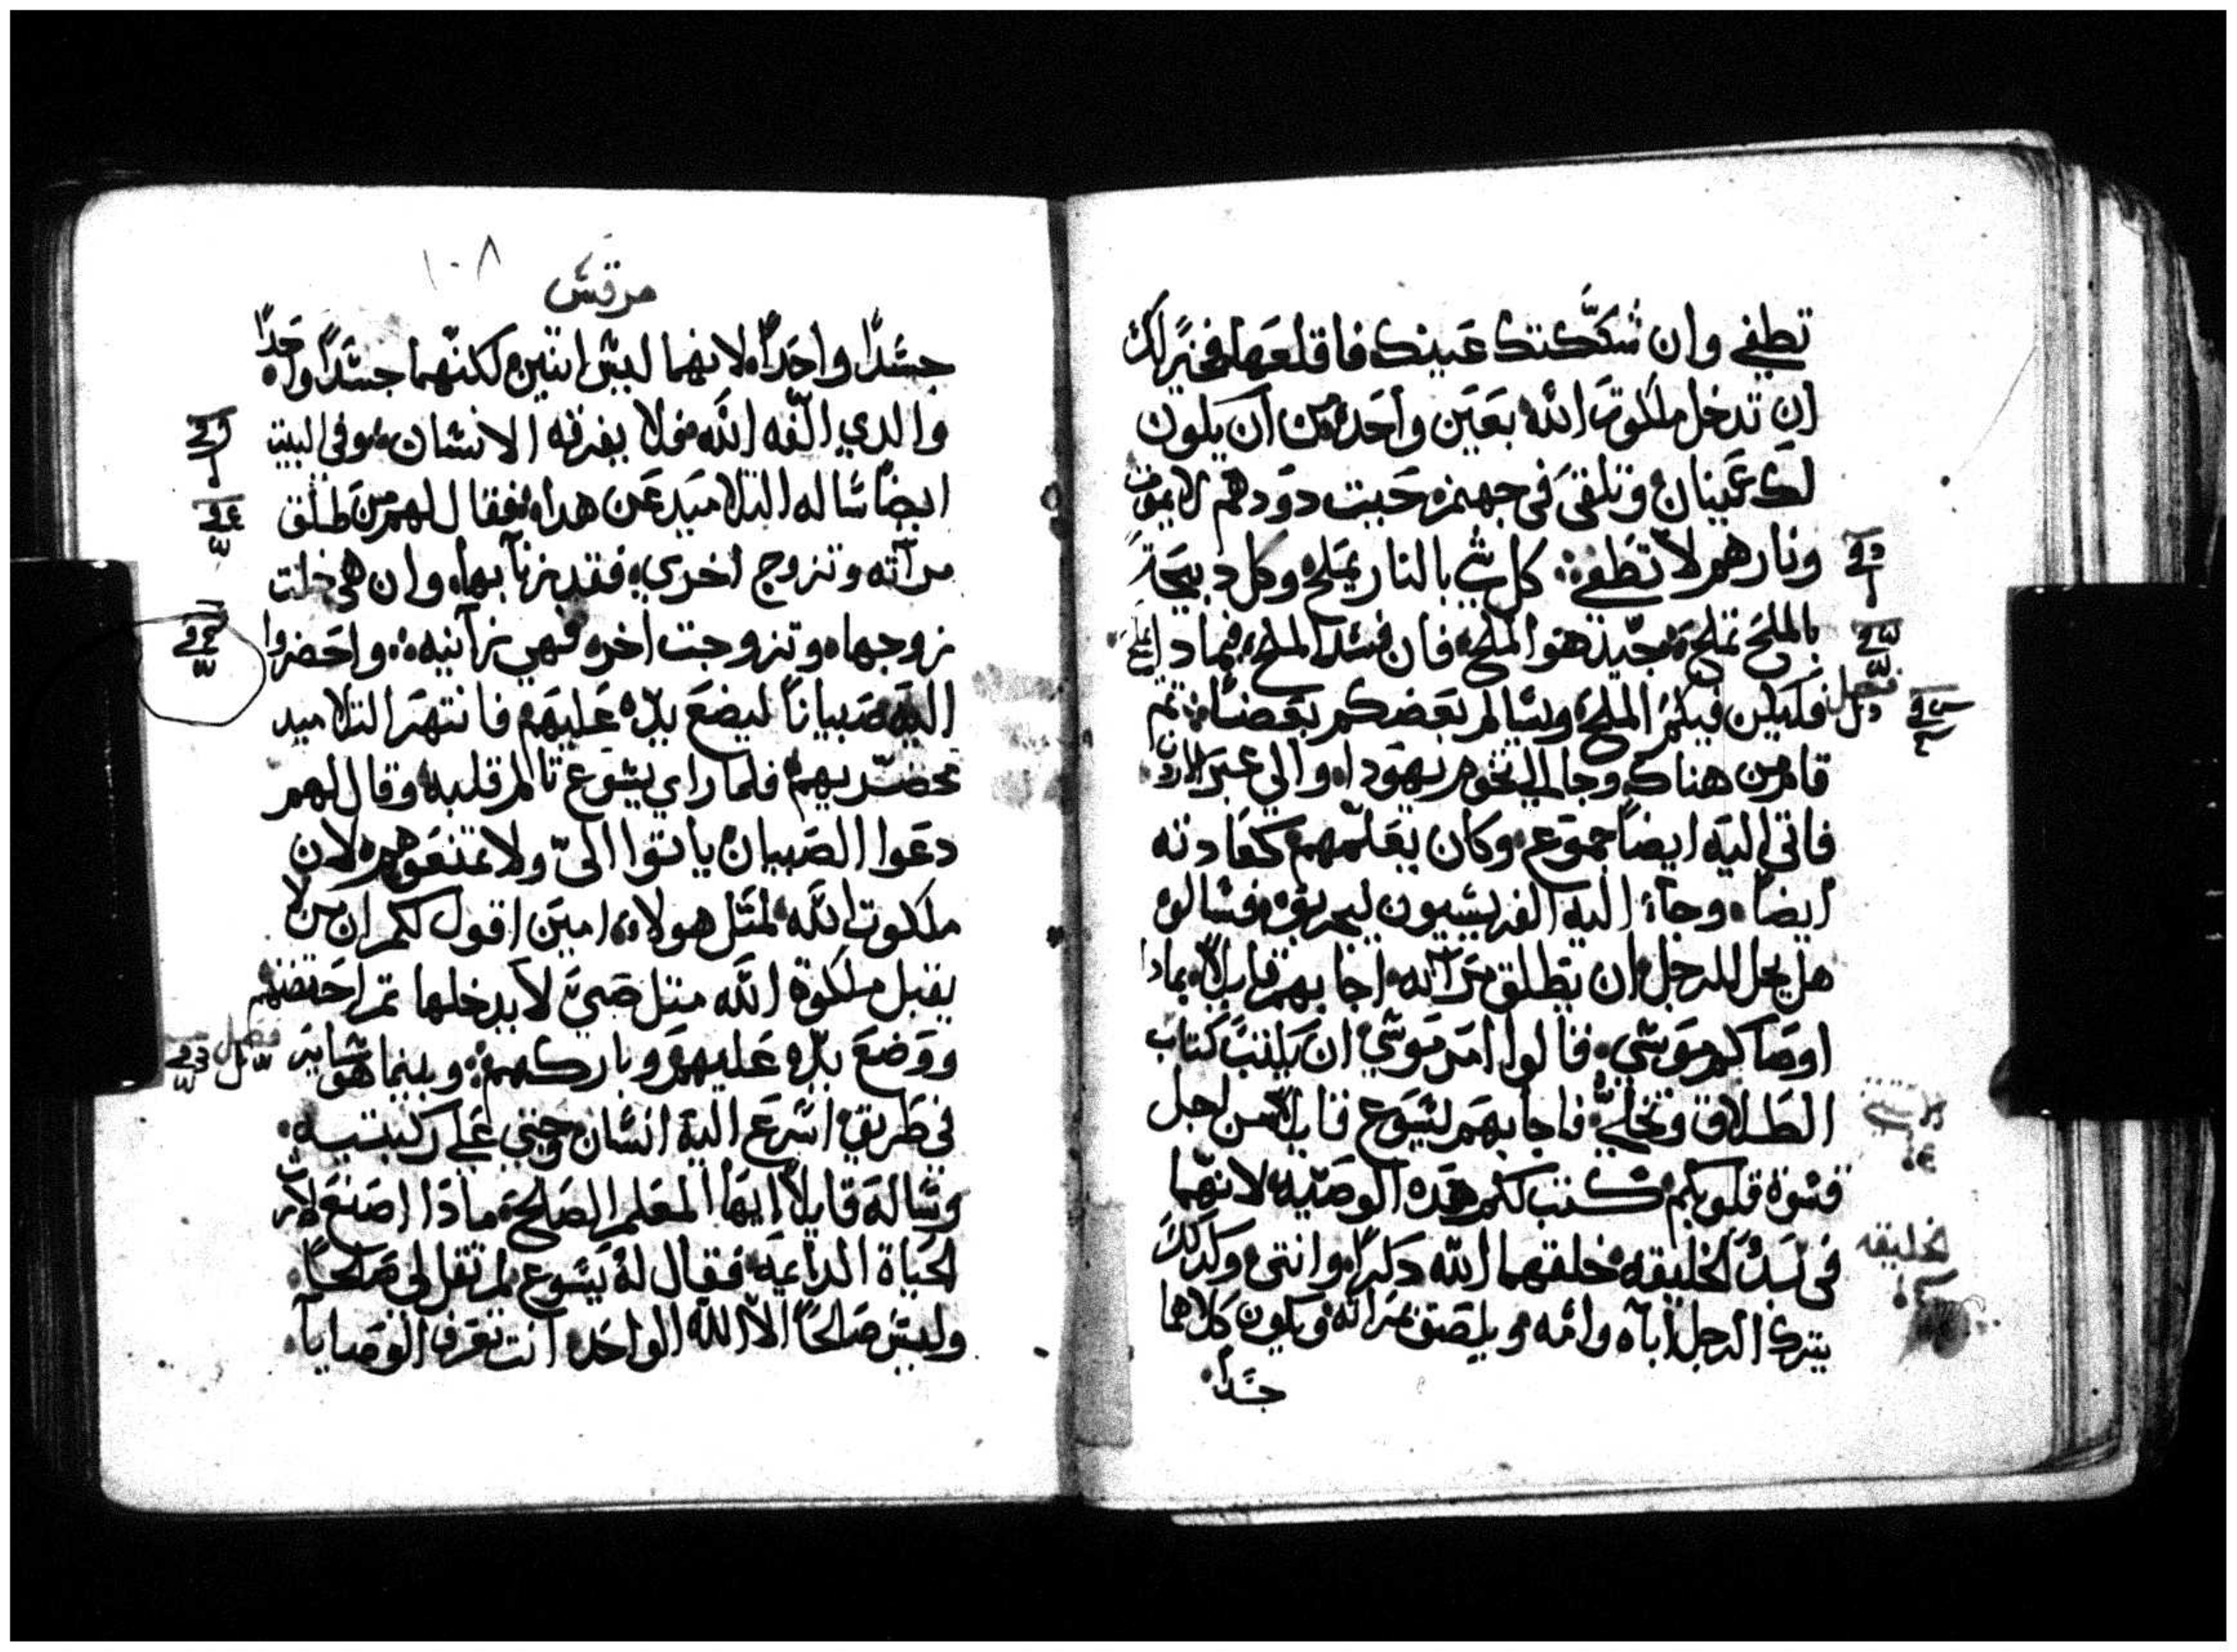 تطفي وان شككتك عينك فاقلعها فخيرًا لك
ان تدخل ملكوت الله بعين واحده من ان يكون
لك عينان وتلقي في جهنم حيت دودهم لا يموت
ونارهم لا تطفي كل شي بالنار يملح وكل دبيحة
بالملح تملح جيد هو الملح فان فسد الملح فبمادا يملح
فليكن فيكم الملح وسالم بعضكم بعضا تم
قام من هناك وجا الي تخوم يهودا والي عبر الاردن
فاتي اليه ايضا جموع وكان يعلمهم كعادته
ايضا وجاء اليه الفريسيون ليجربوه فسالوه
هل يحل للرجل ان يطلق مراته اجابهم قايلا بمادا
اوصاكم موسي فقالوا امر موسي ان يكتب كتاب
الطلاق وتخلي فاجابهم يسوع قايلا من اجل
قسوة قلوبكم كتب لكم هده الوصيه لانهما
في بدء الخليقه خلقهما الله دكرا وانتي ولدلك
يترك الرجل اباه وامه ويلصق بمراته ويكون كلاهما
جسدا
فصل
الخليقه
١٠٨
مرقس
جسدا واحدا لانهما ليس اتنين لكنهما جسدا واحدا
والدي الفه الله فلا يفرقه الانسان وفي البيت
ايضا ساله التلاميد عن هدا فقال لهم من طلق
مراته وتزوج اخري فقد زنا بها وان هي خلت
زوجها وتزوجت اخر فهي زانيه واحضروا
اليه صبيانا ليضع يده عليهم فانتهر التلاميد
محضريهم فلما راي يسوع تالم قلبه وقال لهم
دعوا الصبيان ياتوا الي ولا تمنعوهم لان
ملكوت الله لمتل هولاء امين اقول لكم ان من لا
يقبل ملكوة الله متل صبي لا يدخلها تم احتضنهم
ووضع يده عليهم وباركهم وبينما هو ساير
في طريق اسرع اليه انسان وجتي علي ركبتيه
وساله قايلا ايها المعلم الصالح مادا اصنع لارت
الحياة الدايمه فقال له يسوع لم تقل لي صالحا
وليس صالحا الا الله الواحد انت تعرف الوصايا
فصل